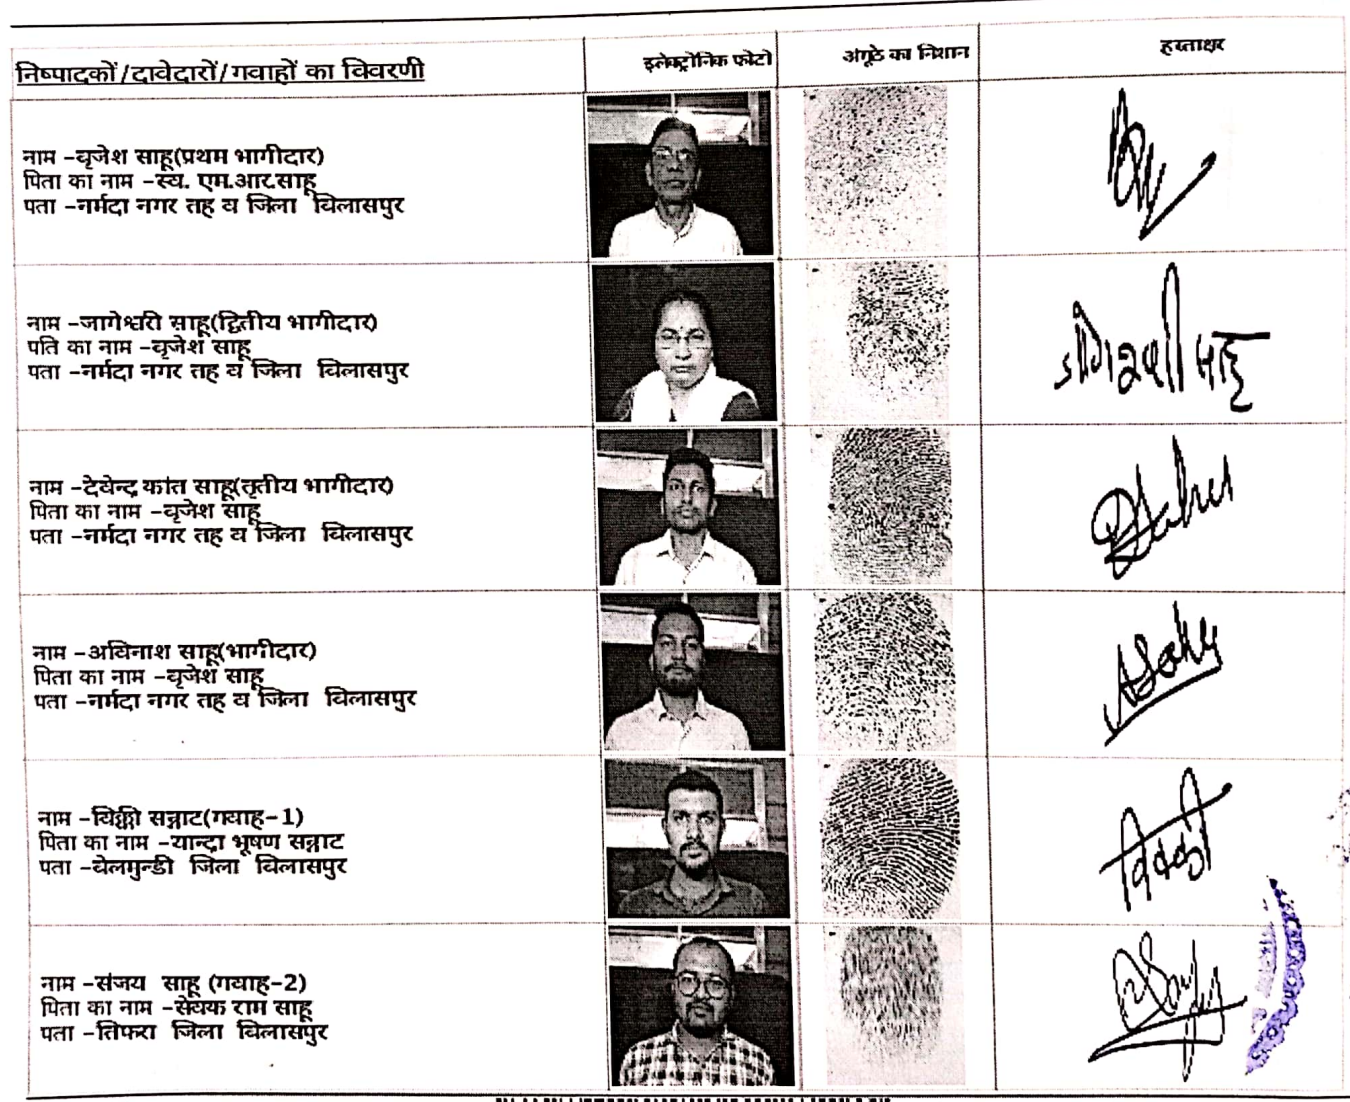 निष्पादकों/दावेदारों/गवाहों का विवरणी
इलेक्ट्रोनिक फोटो
अंगूठे का निशान
हस्ताक्षर
नाम -बृजेश साहू(प्रथम भागीदार)
पिता का नाम -स्व. एम.आर.साहू
पता -नर्मदा नगर तह व जिला बिलासपुर
नाम -जागेश्वरी साहू(द्वितीय भागीदार)
पति का नाम -बृजेश साहू
पता -नर्मदा नगर तह व जिला बिलासपुर
जागेश्वरी साहू
नाम -देवेन्द्र कांत साहू(तृतीय भागीदार)
पिता का नाम -बृजेश साहू
पता -नर्मदा नगर तह व जिला बिलासपुर
DSahu
नाम -अविनाश साहू(भागीदार)
पिता का नाम -बृजेश साहू
पता -नर्मदा नगर तह व जिला बिलासपुर
ASahu
नाम -विक्की सन्नाट(गवाह-1)
पिता का नाम -चान्द्रा भूषण सन्नाट
पता -बेलमुन्डी जिला बिलासपुर
विक्की
नाम -संजय साहू (गवाह-2)
पिता का नाम -सेवक राम साहू
पता -तिफरा जिला बिलासपुर